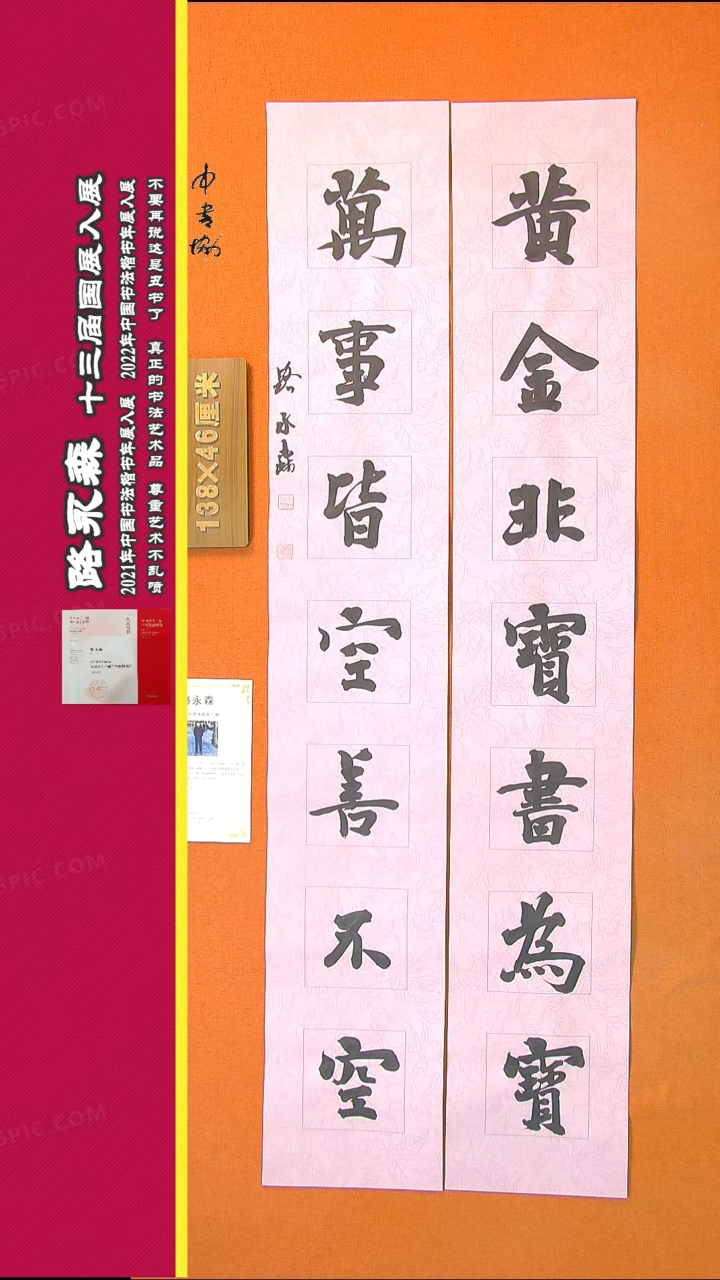 黄金非寶書為寶
萬事皆空善不空
路永森
中書協
138×46厘米
永森
路永森 十三届国展入展
2021年中国书法楷书年展入展 2022年中国书法楷书年展入展
不要再说这是丑书了 真正的书法艺术品 尊重艺术不乱喷